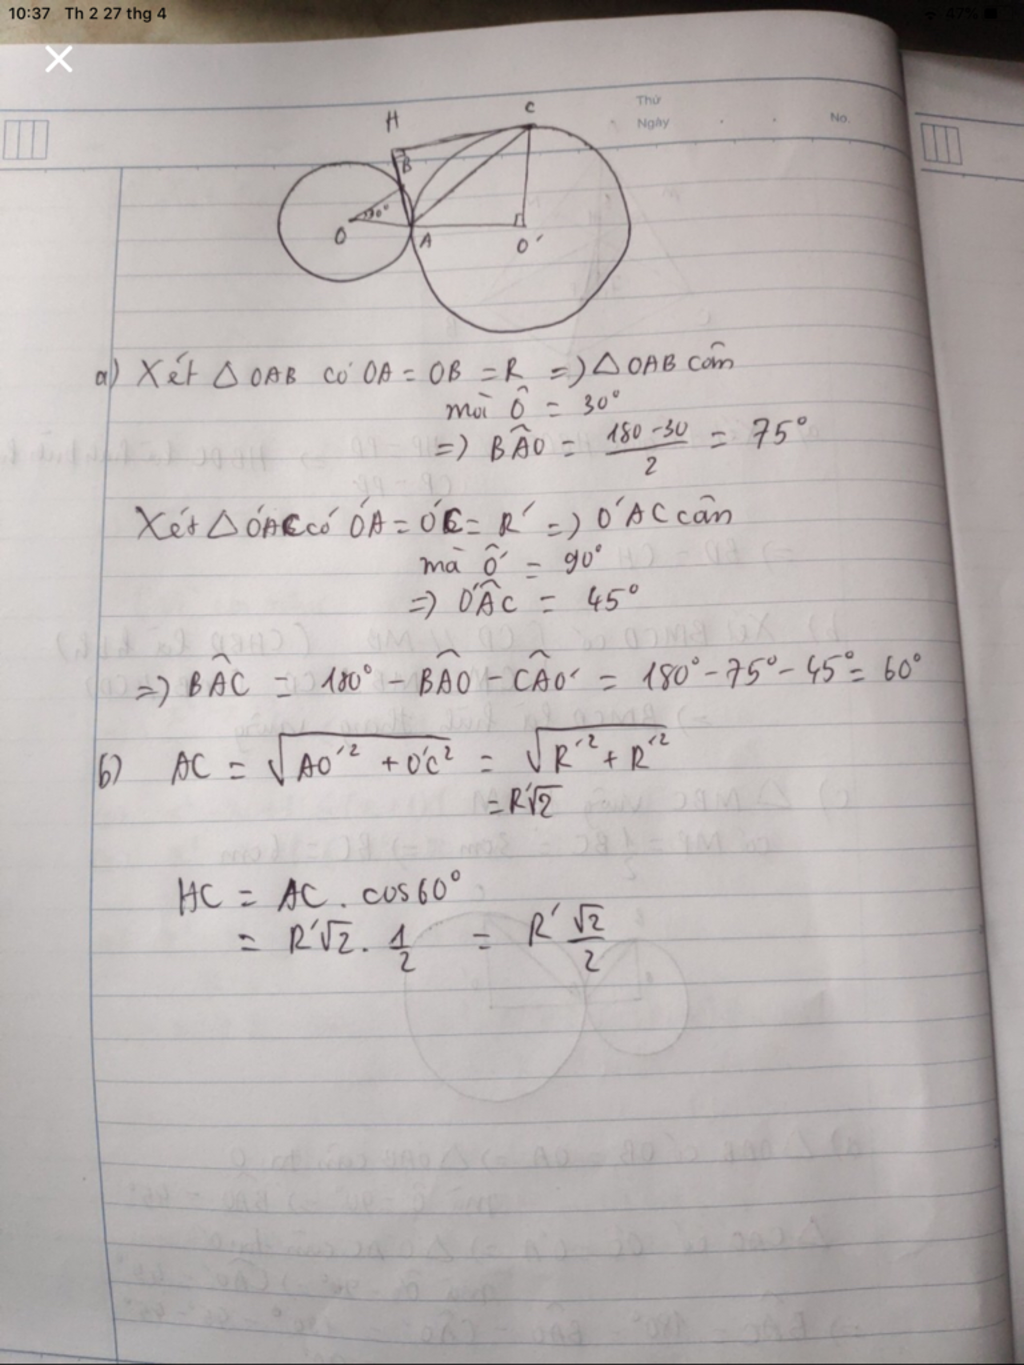 10:37 Th 2 27 thg 4
47%
Thứ
Ngày
No.
H
C
B
30°
O
A
O'
a) Xét △OAB có OA = OB = R => △OAB cân
mà Ô = 30°
=> BÂO = (180-30)/2 = 75°
Xét △O'AC có O'A = O'C = R' => O'AC cân
mà Ô' = 90°
=> O'ÂC = 45°
=> BÂC = 180° - BÂO - CÂO' = 180° - 75° - 45° = 60°
b) AC = √(AO'² + O'C²) = √(R'² + R'²)
= R'√2
HC = AC . cos60°
= R'√2 . 1/2 = R' √2/2